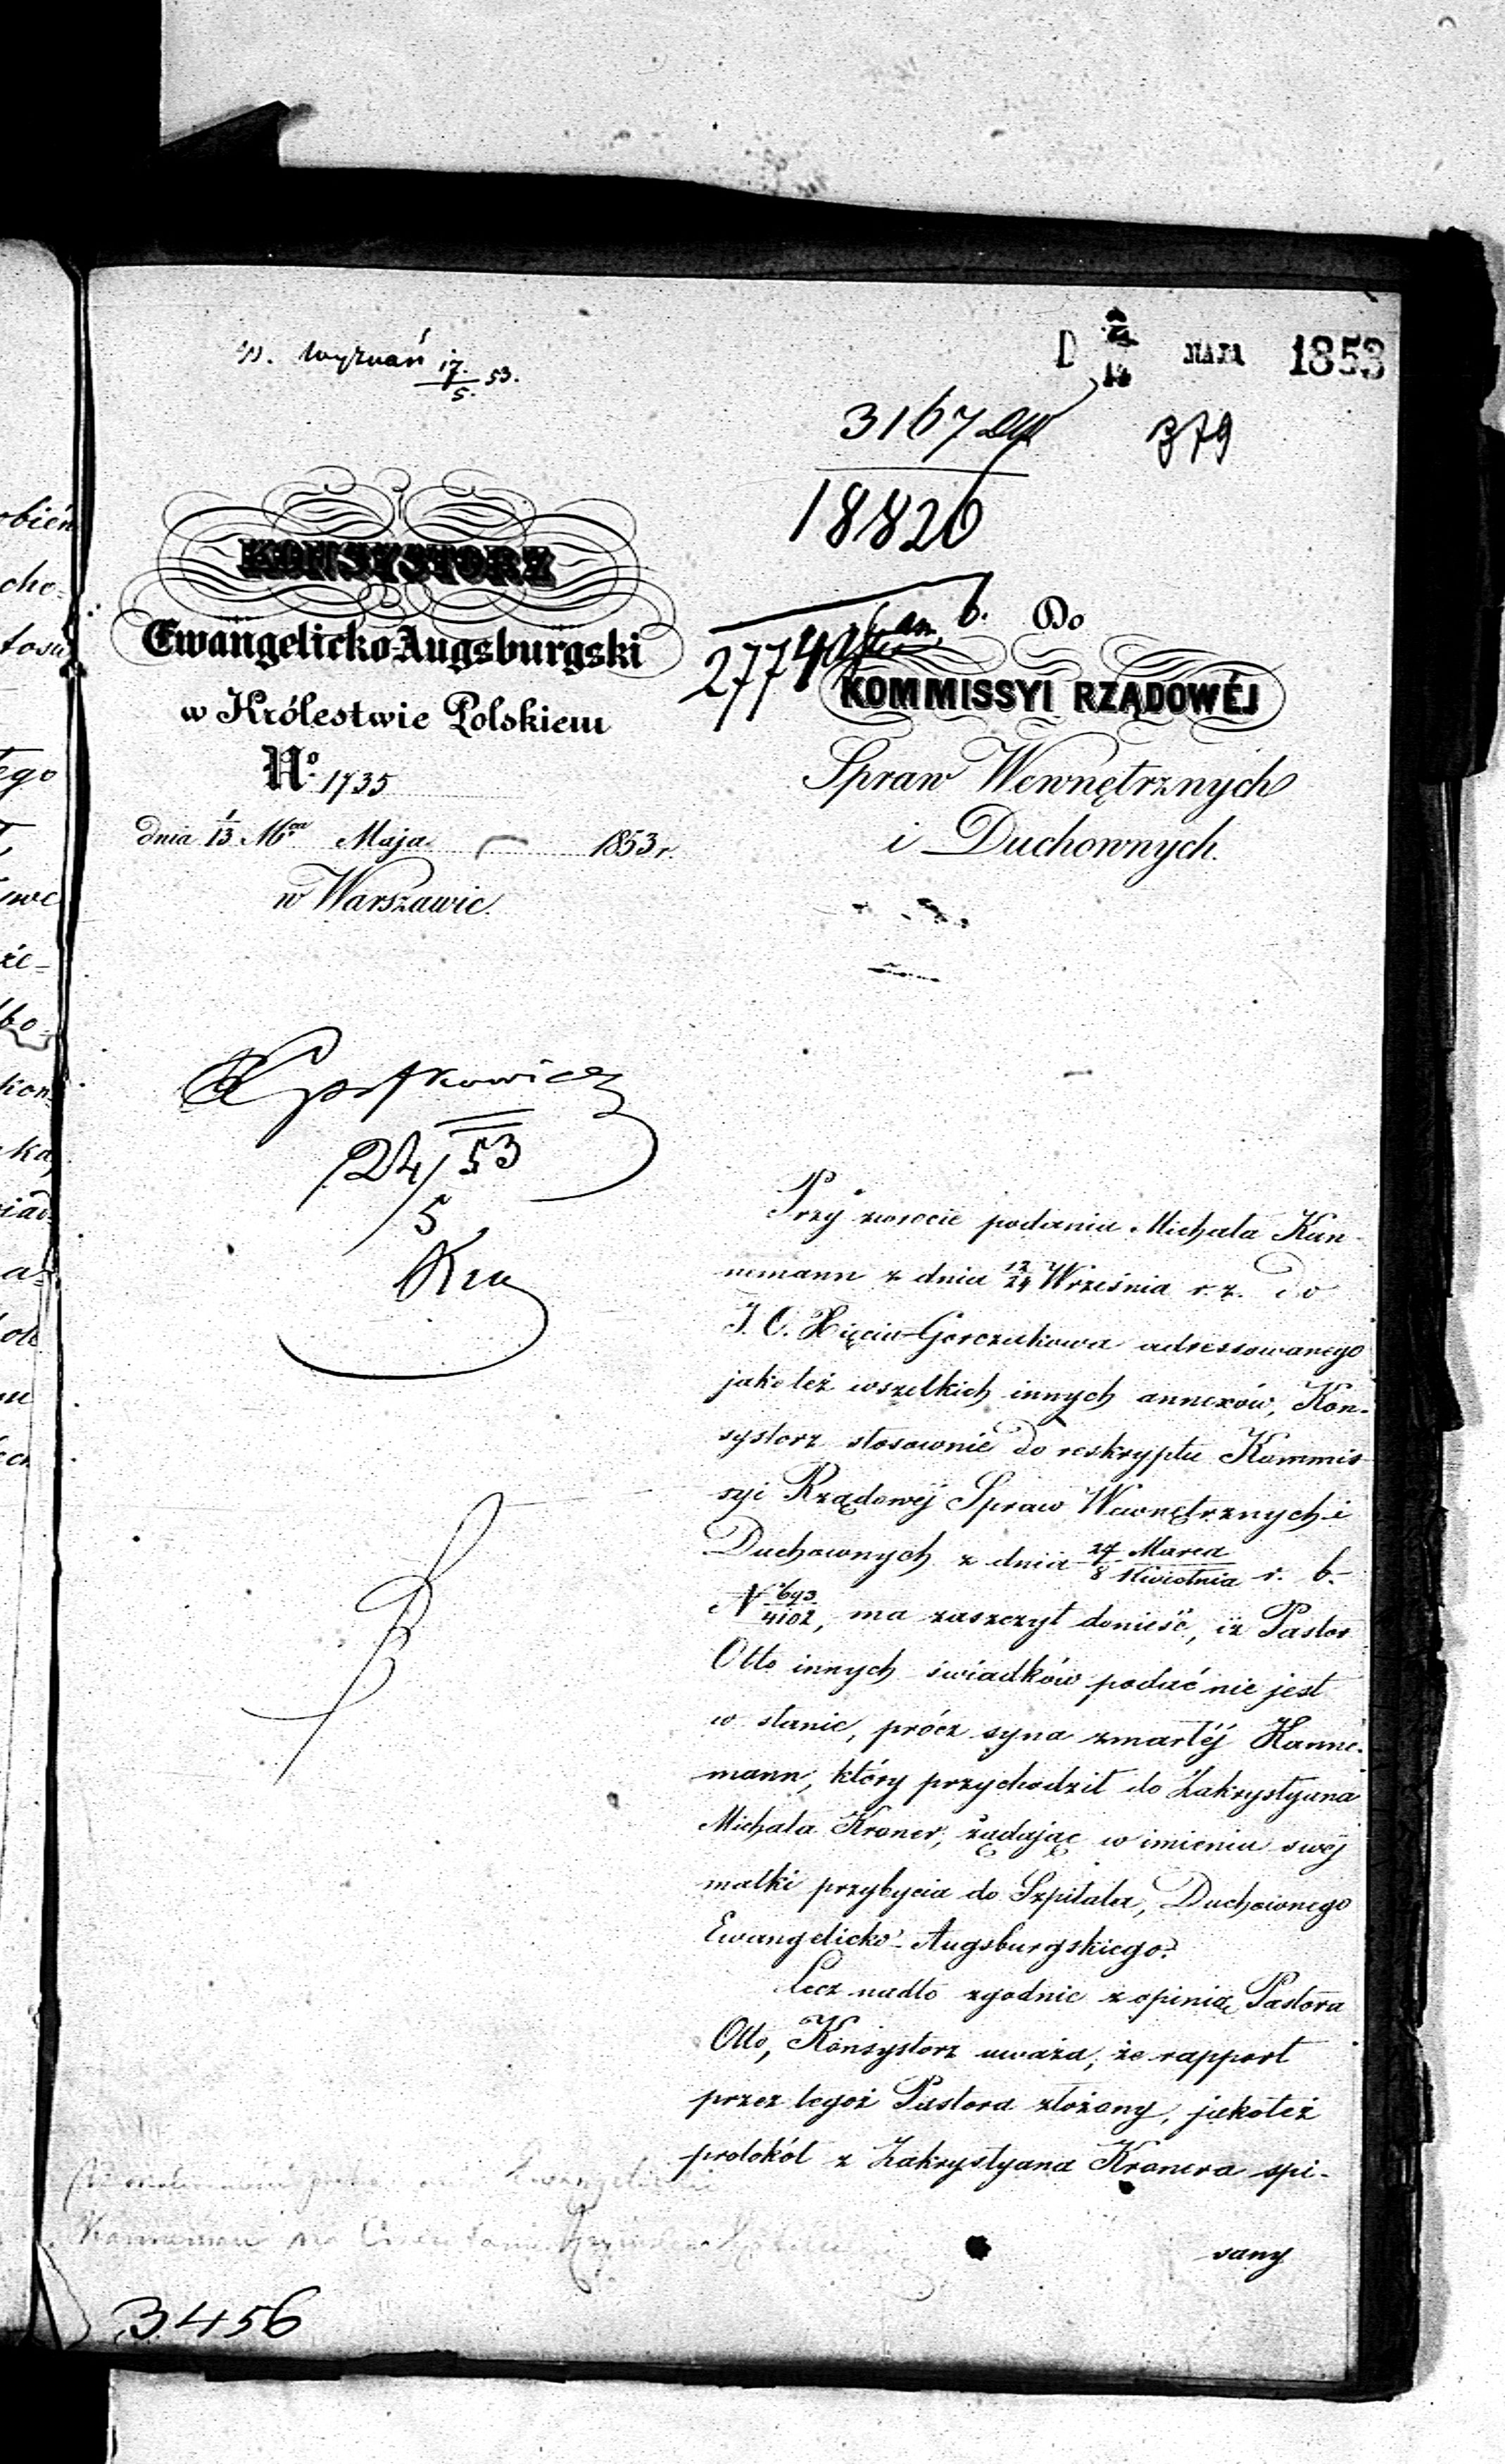 W. Wyznań 17/5. 53.
D 2/14 MAJA 1853
3167
379
18826
2774
b.
KONSYSTORZ
Ewangelicko-Augsburgski
w Królestwie Polskiem
No. 1735
dnia 1/13 Mca Maja 1853 r.
w Warszawie.
Do
KOMMISSYI RZĄDOWÉJ
Spraw Wewnętrznych
i Duchownych.
24/5 53
Przy zwrocie podania Michała Kan-
nemann z dnia 12/24 Września r. z. do
J. O. Xięcia Gorczakowa adressowanego
jako też wszelkich innych annexów, Kon-
systorz stosownie do reskryptu Kommis-
syi Rządowej Spraw Wewnętrznych i
Duchownych z dnia 27 Marca/8 Kwietnia r. b.
N 693/4102, ma zaszczyt donieść, iż Pastor
Otto innych świadków podać nie jest
w stanie, prócz syna zmarłéj Kanne-
mann, który przychodził do Zakrystyana
Michała Kroner, żądając w imieniu swéj
matki przybycia do Szpitala, Duchownego
Ewangelicko-Augsburgskiego.
Lecz nadto zgodnie z opinią Pastora
Otto, Konsystorz uważa, że rapport
przez tegoż Pastora złożony, jakoteż
protokół z Zakrystyana Kronera spi-
sany
3456